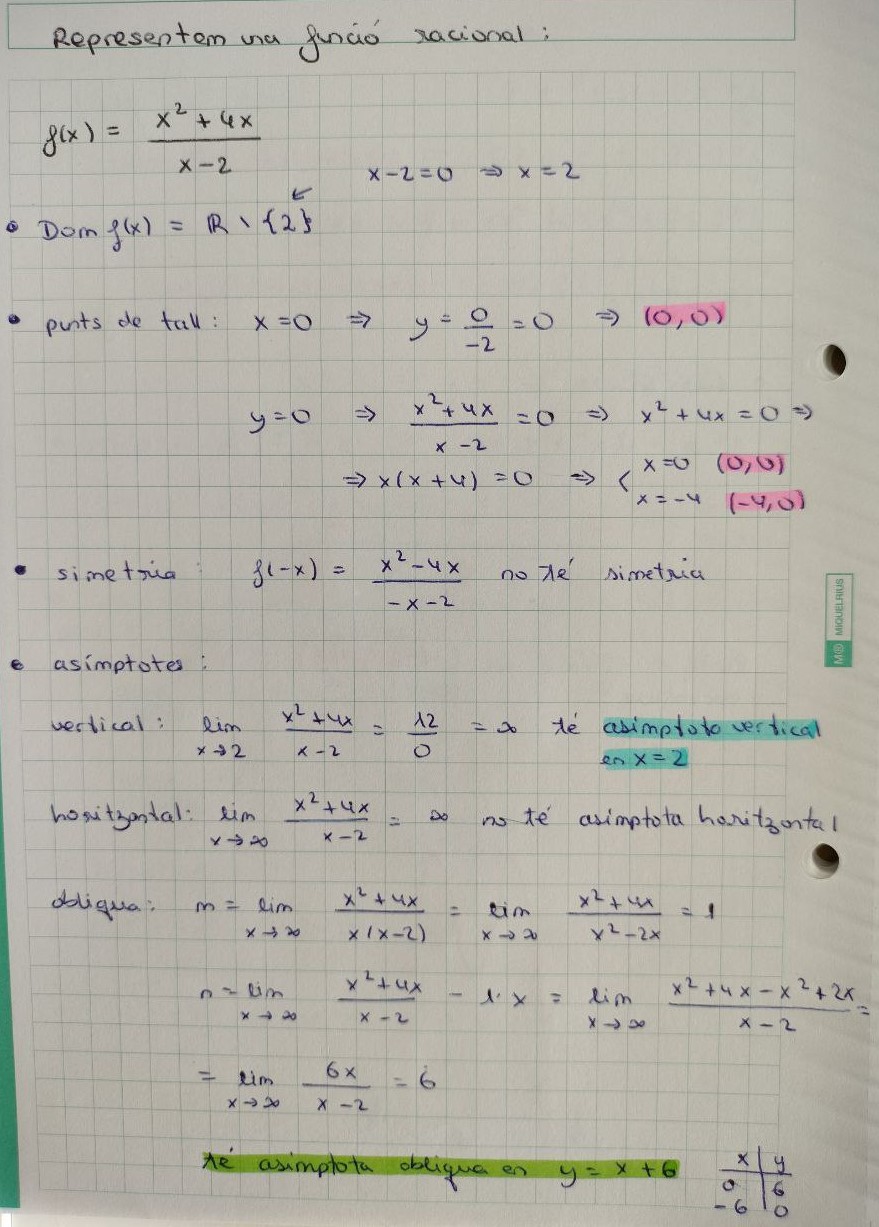 Representem una funció racional:
f(x) = (x² + 4x)/(x - 2)
x - 2 = 0 ⇒ x = 2
• Dom f(x) = ℝ \ {2}
• punts de tall: x = 0 ⇒ y = 0/-2 = 0 ⇒ (0,0)
y = 0 ⇒ (x² + 4x)/(x - 2) = 0 ⇒ x² + 4x = 0 ⇒
⇒ x(x + 4) = 0 ⇒ < x = 0 (0,0)
x = -4 (-4,0)
• simetria: f(-x) = (x² - 4x)/(-x - 2) no té simetria
• asímptotes:
vertical: lim x→2 (x² + 4x)/(x - 2) = 12/0 = ∞ té asímptota vertical
en x = 2
horitzontal: lim x→∞ (x² + 4x)/(x - 2) = ∞ no té asímptota horitzontal
obliqua: m = lim x→∞ (x² + 4x)/(x(x - 2)) = lim x→∞ (x² + 4x)/(x² - 2x) = 1
n = lim x→∞ (x² + 4x)/(x - 2) - 1·x = lim x→∞ (x² + 4x - x² + 2x)/(x - 2) =
= lim x→∞ 6x/(x - 2) = 6
té asímptota obliqua en y = x + 6
x | y
0 | 6
-6 | 0
MIQUELRIUS